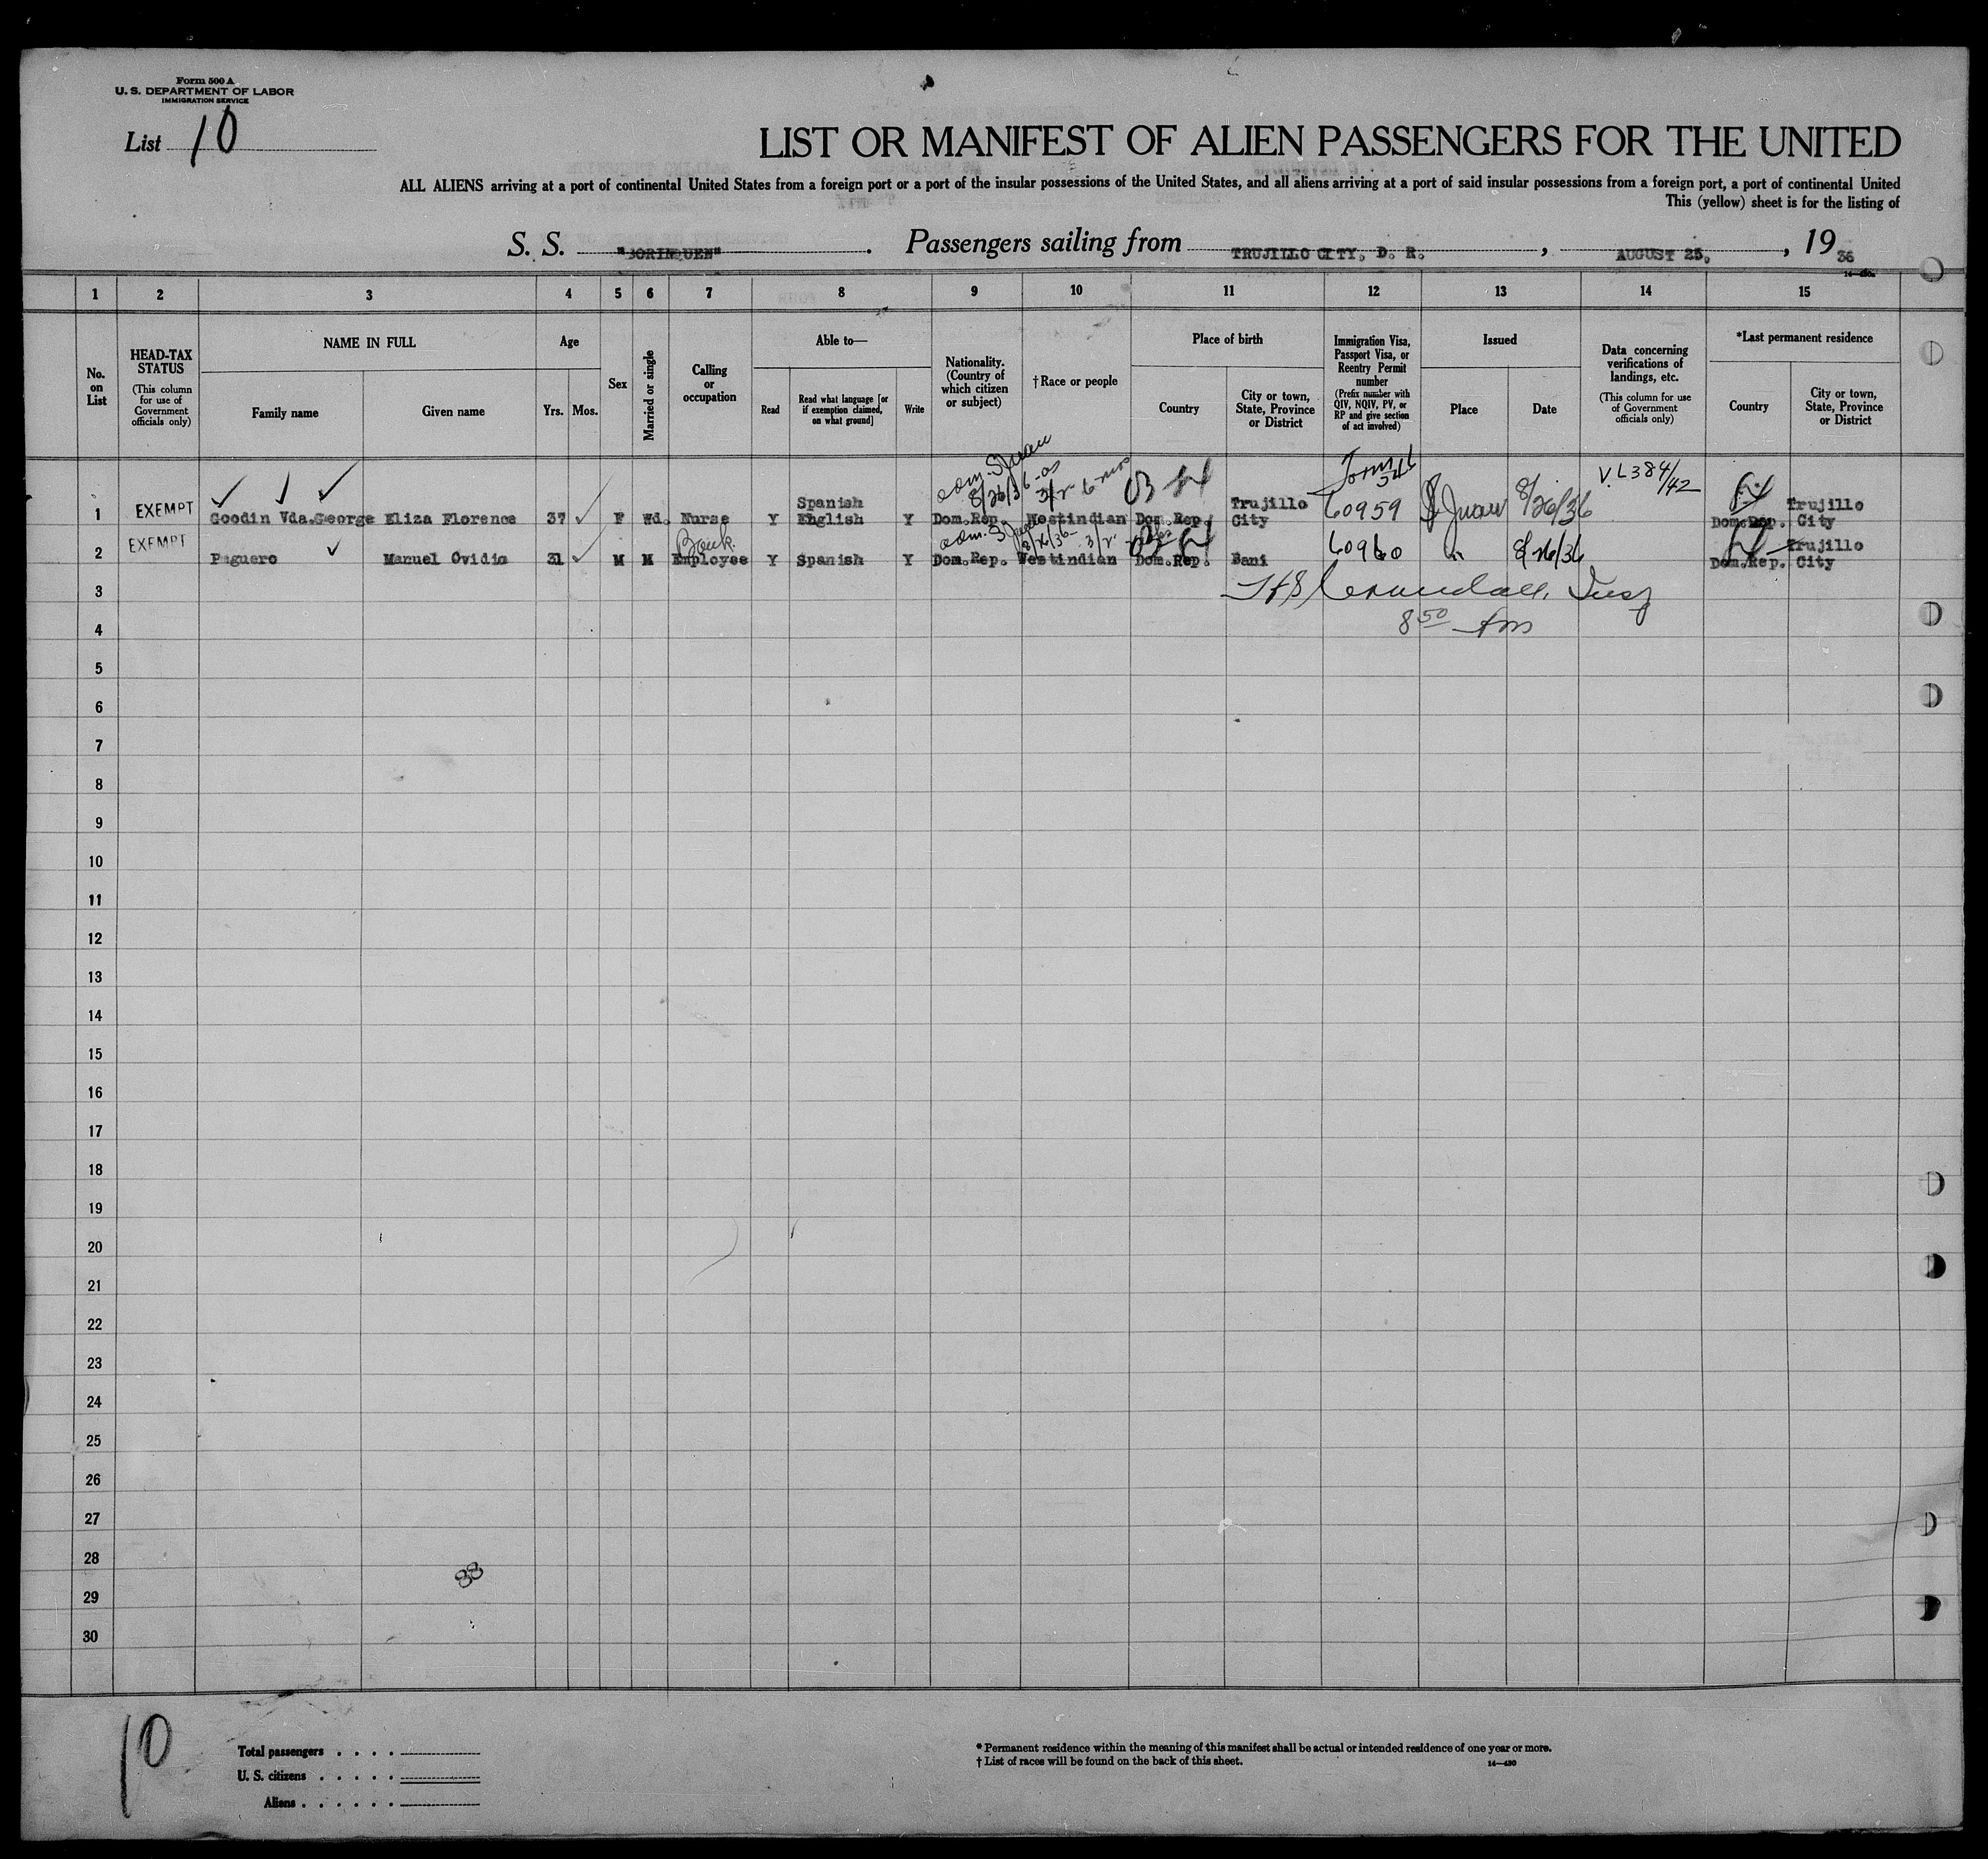 Form 500 A
U. S. DEPARTMENT OF LABOR
IMMIGRATION SERVICE
List 10
LIST OR MANIFEST OF ALIEN PASSENGERS FOR THE UNITED
ALL ALIENS arriving at a port of continental United States from a foreign port or a port of the insular possessions of the United States, and all aliens arriving at a port of said insular possessions from a foreign port, a port of continental United
This (yellow) sheet is for the listing of
S. S. "BORINQUEN". Passengers sailing from TRUJILLO CITY, D. R., AUGUST 25, 1936
14-480a
1 2 3 4 5 6 7 8 9 10 11 12 13 14 15
No. on List
HEAD-TAX STATUS
(This column for use of Government officials only)
NAME IN FULL
Family name
Given name
Age
Yrs.
Mos.
Sex
Married or single
Calling or occupation
Able to—
Read
Read what language [or if exemption claimed, on what ground]
Write
Nationality. (Country of which citizen or subject)
†Race or people
Place of birth
Country
City or town, State, Province or District
Immigration Visa, Passport Visa, or Reentry Permit number
(Prefix number with QIV, NQIV, PV, or RP and give section of act involved)
Issued
Place
Date
Data concerning verifications of landings, etc.
(This column for use of Government officials only)
*Last permanent residence
Country
City or town, State, Province or District
adm. S Juan
8/26/36 - as
3/2- 6 mos
Form 546
V.L 384/42
1 EXEMPT Goodin Vda.George Eliza Florence 37 F Wd. Nurse Y Spanish English Y Dom.Rep. Westindian Dom.Rep. Trujillo City 60959 S Juan 8/26/36 Dom.Rep. Trujillo City
adm. S Juan
8/26/36 - 3/2
2 EXEMPT Peguero Manuel Ovidio 31 M M Bank. Employee Y Spanish Y Dom.Rep. Westindian Dom.Rep. Bani 60960 " 8/26/36 Dom.Rep. Trujillo City
3
Crandall, Insp
4
8 50 Am
5
6
7
8
9
10
11
12
13
14
15
16
17
18
19
20
21
22
23
24
25
26
27
28
88
29
30
10
Total passengers
U. S. citizens
Aliens
* Permanent residence within the meaning of this manifest shall be actual or intended residence of one year or more.
† List of races will be found on the back of this sheet.
14-480